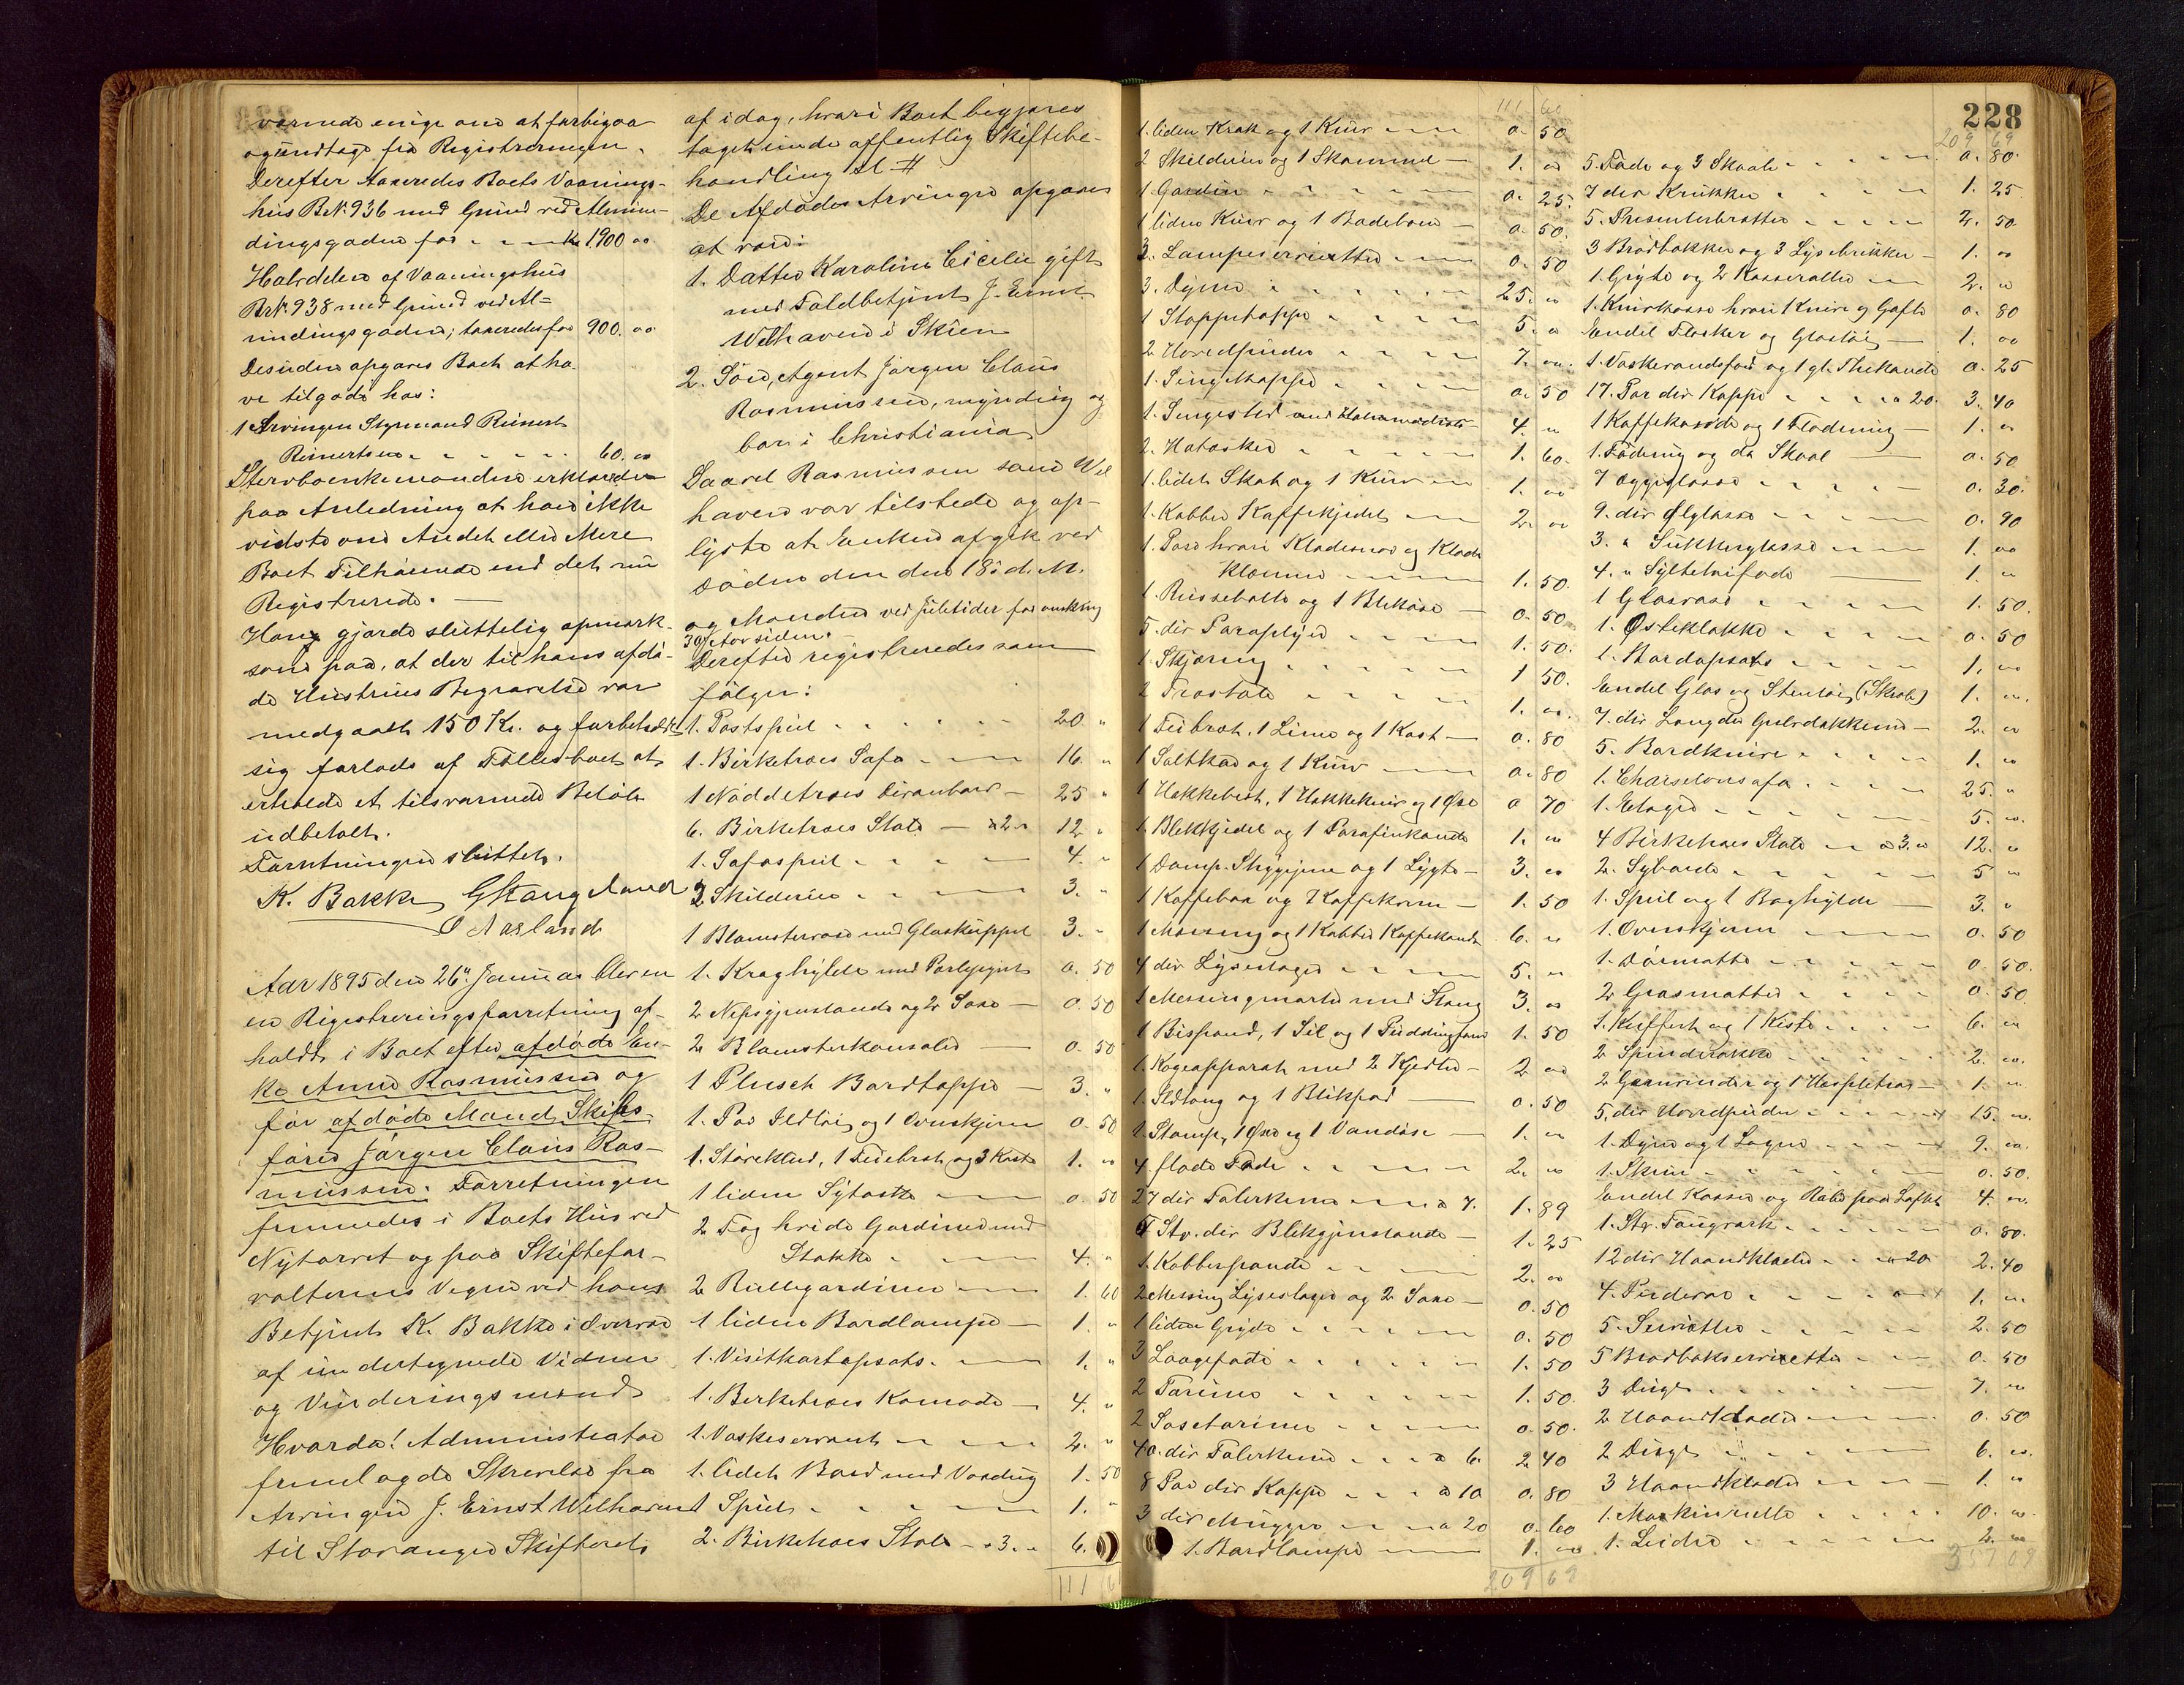 værende enige om at forbigaa
og undtage fra Registreringen.
Derefter taxeredes Boets Vaanings-
hus B.N. 936 med Grund ved Almin-
dingsgaden for - - - Kr 1900 00
Halvdelen af Vaaningshus
B.N. 938 med Grund ved Al-
mindingsgaden; taxeredes for 900. 00
Desuden opgaves Boet at ha-
ve tilgode hos:
1 Arvingen Styrmand Reinert
Reinertsen - - - - - 60. 00
Stervboenkemanden erklærede
paa Anledning at han ikke
vidste om Andet eller Mere
Boet Tilhørende end det nu
Registrerede. —
Han gjorde sluttelig opmærk-
som paa, at der til hans afdø-
de Hustrues Begravelse var
medgaaet 150 Kr. og forbeholdt
sig forlods af Fællesboet at
erholde et tilsvarende Beløb
udbetalt.
Forretningen sluttet.
K. Bakke GStangeland
O Aasland
Aar 1895 den 26" Januar blev en
en Registreringsforretning af-
holdt i Boet efter afdøde En-
ke Anne Rasmussen og
før afdøde Mand, Skibs-
fører Jørgen Claus Ras-
mussen. Forretningen
fremmedes i Boets Hus ved
Nytorvet og paa Skiftefor-
valterens Vegne ved hans
Betjent K. Bakke i Overvær
af undertegnede Vidner
og Vurderingsmænd
Hvorda! Administrator
fremlagde Skrivelse fra
Arvingen J. Ernst Welhaven
til Stavanger Skifteret
af idag, hvori Boet begjæres
taget under offentlig Skiftebe-
handling Al #
De Afdødes Arvinger opgaves
at være:
1. Datter Karoline Cicilie gift
med Toldbetjent J. Ernst
Welhaven i Skien
2. Søn, Agent Jørgen Claus
Rasmussen, myndig og
bor i Christiania
Saavel Rasmussen som Wel
haven var tilstede og op-
lyste at Enken afgik ved
Døden den 18 d. M.
og Manden ved Juletider for omkring
30 Aar siden.
Derefter registreredes som
følger:
1. Postspeil - - - - - 20 "
1. Birketræes Sofa - - - 16 "
1 Nøddetræes Divanbord - 25 "
6. Birketræes Stole - à 2 " 12 "
1. Sofaspeil - - - - 4. "
2 Skilderier - - - - 3. "
1 Blomstervase med Glaskuppel 3. "
1. Kraghylde med Porlejgient 0. 50
2 Nipsgjenstande og 2 Vaser - 0. 50
2 Blomsterkonsoler — 0. 50
1 Plusch Bordtæppe - 3. "
1. Par Ildtøi og 1 Ovnskjerm 0. 50
1. Støveklud, 1 Feiebræt og 3 Koste 1. 00
1 liden Sytaske - - 0. 50
2 Fag hvide Gardiner med
Stokke - - - 4. "
2 Rullegardiner - - 1. 60
1 liden Bordlampe - 1. "
1. Visitkortopsats. - - 1. "
1. Berketræes Komode - 4. "
1. Vaskeservant - - - 2. "
1. lidet Bord med Voxdug 1. 50
1 Speil - - - - - 1. "
2. Birketræes Stole - à 3. " 6.
111 60
111 60
1. liden Krak og 1 Kurv - - - 0. 50
2 Skilderier og 1 Skammel - 1. 00
1. Gardin - - - - - 0. 25.
1 liden Kurv og 1 Badeboen - 0. 50.
3. Lampeservietter - - - 0. 50
3. Dyner - - - - - 25. 00
1 Stoppetæppe - - - - 5. 00
2 Hovedpuder - - - - 7. 00.
1. Sengetæppe - - - - 0. 50
1. Sengested med Halmmadrats 4. 00
2. Hatæsker - - - - 1. 60.
1. lidet Skab og 1 Kurv - - 1. 00
1. Kobber Kaffekjedel - - 2. 00
1. Pose hvori Kladesnor og Klæde
Klemmer - - - - 1. 50.
1 Reisekasse og 1 Blikøse - 0. 50
5. div Paraplyer - - - 1. 50.
1. Skjæring - - - - 1 50.
2 Træstole - - - - 1. 00.
1 Feibræt, 1 Lime og 1 Kost - 0. 80
1 Saltkar og 1 Kurv - - 0. 80
1 Hakkebret, 1 Hakkekniv og 1 Øxe 0 70
1. Blikkjedel og 1 Parafinkande 1. 00
1 Damp-Strygejern og 1 Lygte - 3. 00
1 Kaffebrænder og 1 Kaffekværn - 1. 50
1 Messing og 1 Kobber Kaffekande 6. 00
4 div Lysestager - - - - 5. 00
1 Messingmorter med Stang 3. 00
1 Bispand, 1 Sil og 1 Puddingform 1. 50
1. Kogeapparat med 2 Kjedler - 2 00
1. Ildtang og 1 Blikspand — 0. 50
1. Stamp, 1 Øse og 1 Vandøse - 1. 00
4 flade Fade - - - - 2. 00
27 div Talerkener - - à 7. 1. 89
5 Stk. div Blikgjenstande - 1. 25
1. Kobberpande - - - 2. 00
2 Messing Lysestager og 2 Saxe - 0. 50
1 liden Gryde - - - - 0. 50
3 Laagefade - - - - 1. 50
2 Tariner - - - - 1. 50.
2 Sosetariner - - - 0. 50.
40. div Talerkener - - - à 6. 2. 40
8 Par div Kopper - - - à 10 0. 80
3 div Mugger - - - à 20 0. 60
1. Bordlampe — 1. 00
209 69
228
209 69
5. Fade og 3 Skaale - - - - 0. 80.
7 div Krukker - - - - 1. 25
5. Presenterbrætter - - - 2. 50
3 Brødbakker og 3 Lysebrikker - 1. 00
1. Gryte og 2 Kasseroller - - 2. 00
1. Knivkasse hvori Knive og Gafler 0. 80
Endel Flasker og Glastøi - - 1. 00
1. Vaskevandsfad og 1 gl. Thekande 0. 25
17. Par div Kopper - - - à 20. 3. 40
1 Kaffekande og 1 Flødemug - 1. 00
1. Fødemug og do Skaal — 0. 50
7 Æggeglasse - - - - 0. 30.
9. div Ølglasse - - - - 0. 90
3. " Sukkerglasse - - - 1. 00
4. " Syltetøifade — 1. 00
1 Glasvase - - - - 1. 50.
1. Osteklokke - - - - 0. 50
1. Bordopsats - - - - 1. 00
Endel Glas og Stentøi (Skab) 1. 00.
7. div Længder Gulvdækkener - 2. 00
5. Bordknive - - - - 1. 00
1. Chaiselonsofa - - - - 25. "
1. Etager - - - - - 5. 00.
4 Birketræes Stole - - à 3. 00 12. 00
2. Syborde - - - - - 5 00
1. Speil og 1 Boghylde — 3. "
1. Ovnskjerm - - - - 0. 50
1. Dørmatte - - - - 0. 50.
2 Græsmatter - - - - 0. 50.
1. Kuffert og 1 Kiste - - - 6. 00
2 Spinderokke - - - - 2. 00.
2 Garnvinder og 1 Haspletræ - 1. 00
5. div Hovedpuder - - - - 15. 00.
1. Dyne og 1 Lagen - - - 9. 00.
1. Skrin - - - - - 0. 50.
Endel Kasser og Rabs paa Loftet 4. 00.
1. Stk. Tougværk - - - - 0. 80.
12 div Haandklæder - - à 20 2. 40
4. Pudevar - - - - 1. 00.
5. Servietter - - - - 2. 50
5 Brødbakservietter - - 0. 50
3 Duge - - - - 7. 00
2 Haandklæder - - - 0. 50
2 Duge - - - - 6. 00.
3 Haandklæder - - - 1. 00
1. Maskinrulle - - - 10. 00.
1. Leider - - - - 2. 00
357 09